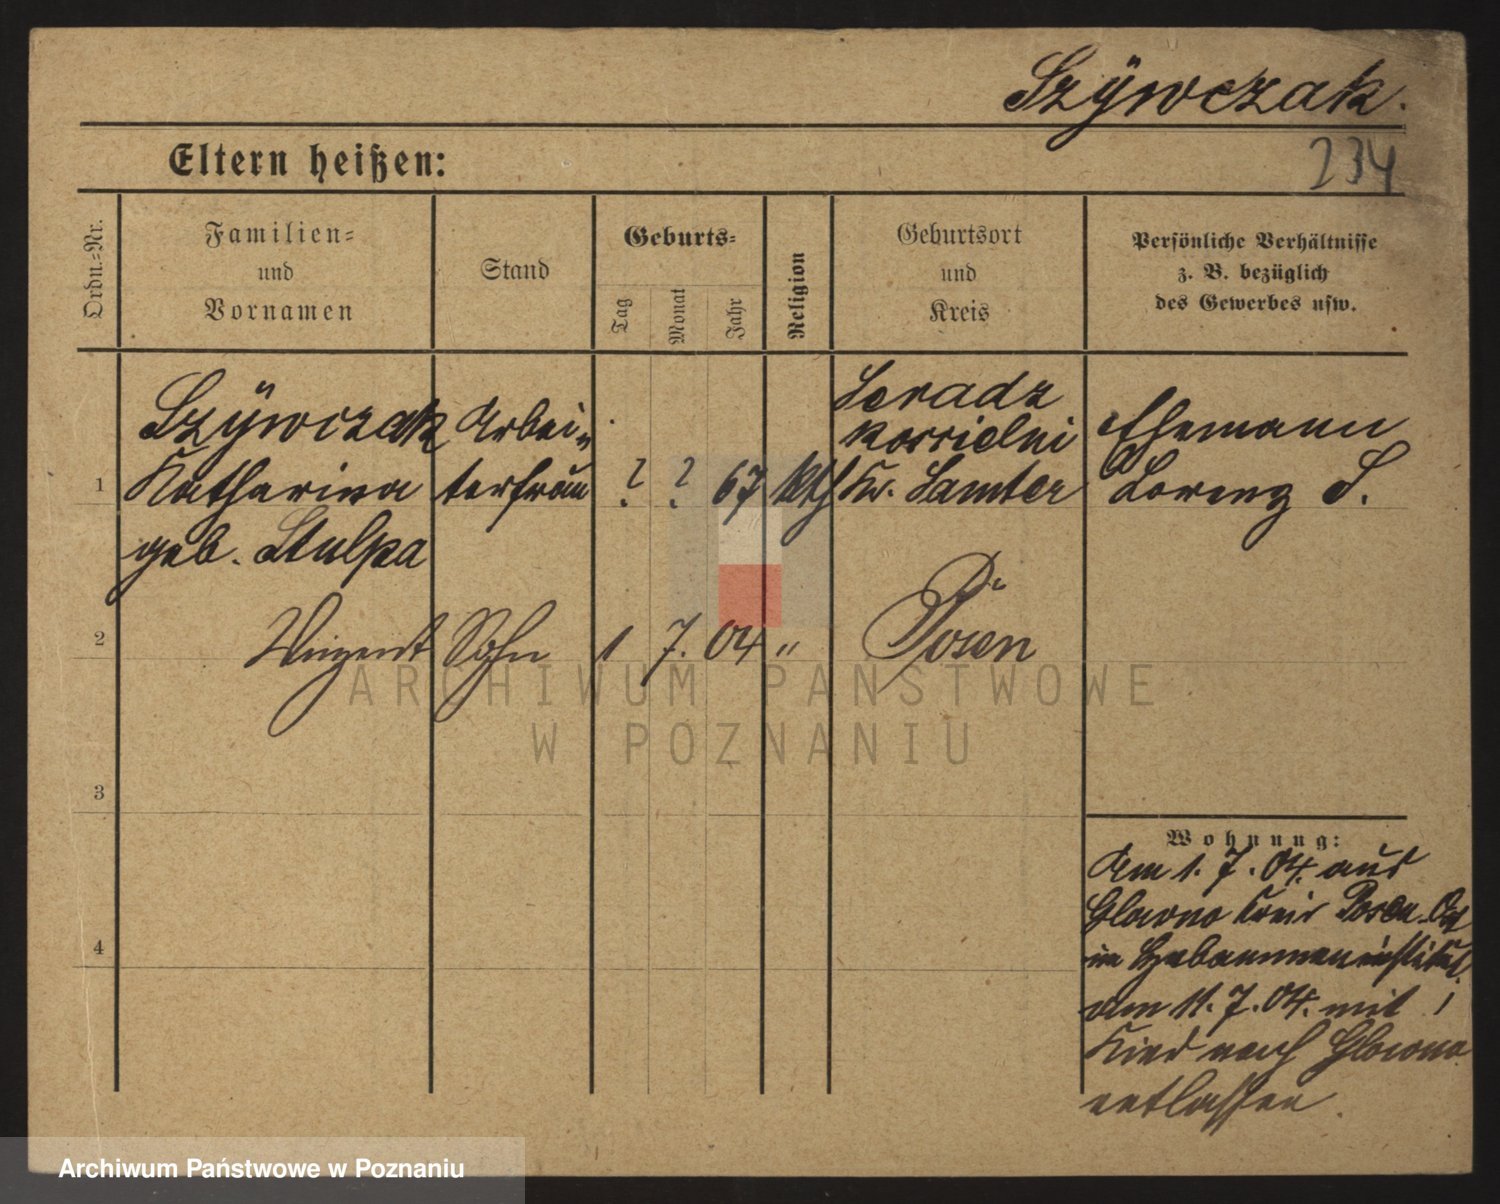 Szÿwczak.
Eltern heißen:
234
Ordn.-Nr.
Familien-
und
Vornamen
Stand
Geburts-
Tag
Monat
Jahr
Religion
Geburtsort
und
Kreis
Persönliche Verhältnisse
z. B. bezüglich
des Gewerbes usw.
1
Szÿwczak
Katharina
geb. Stulpa
Arbei-
terfrau
? ? 67 kth
Seradz
koscielni
Kr. Samter
Ehemann
Lorenz S.
2
Vinzent Sohn 1 7. 04 " Posen
3
4
Wohnung:
Am 1. 7. 04. aus
Glowno Kreis Posen Ost
im Hebammeninstitut
am 11. 7. 04. mit 1
Kind nach Glowno
entlassen.
ARCHIWUM PAŃSTWOWE
W POZNANIU
Archiwum Państwowe w Poznaniu